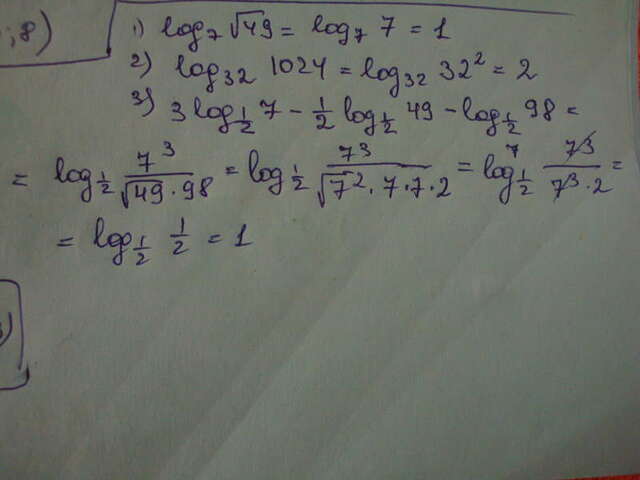 ; 8)
1) log₇ √49 = log₇ 7 = 1
2) log₃₂ 1024 = log₃₂ 32² = 2
3) 3 log_{1/2} 7 - 1/2 log_{1/2} 49 - log_{1/2} 98 =
= log_{1/2} 7³/(√49 · 98) = log_{1/2} 7³/(√7² · 7 · 7 · 2) = log_{1/2} 7³/(7³ · 2) =
= log_{1/2} 1/2 = 1